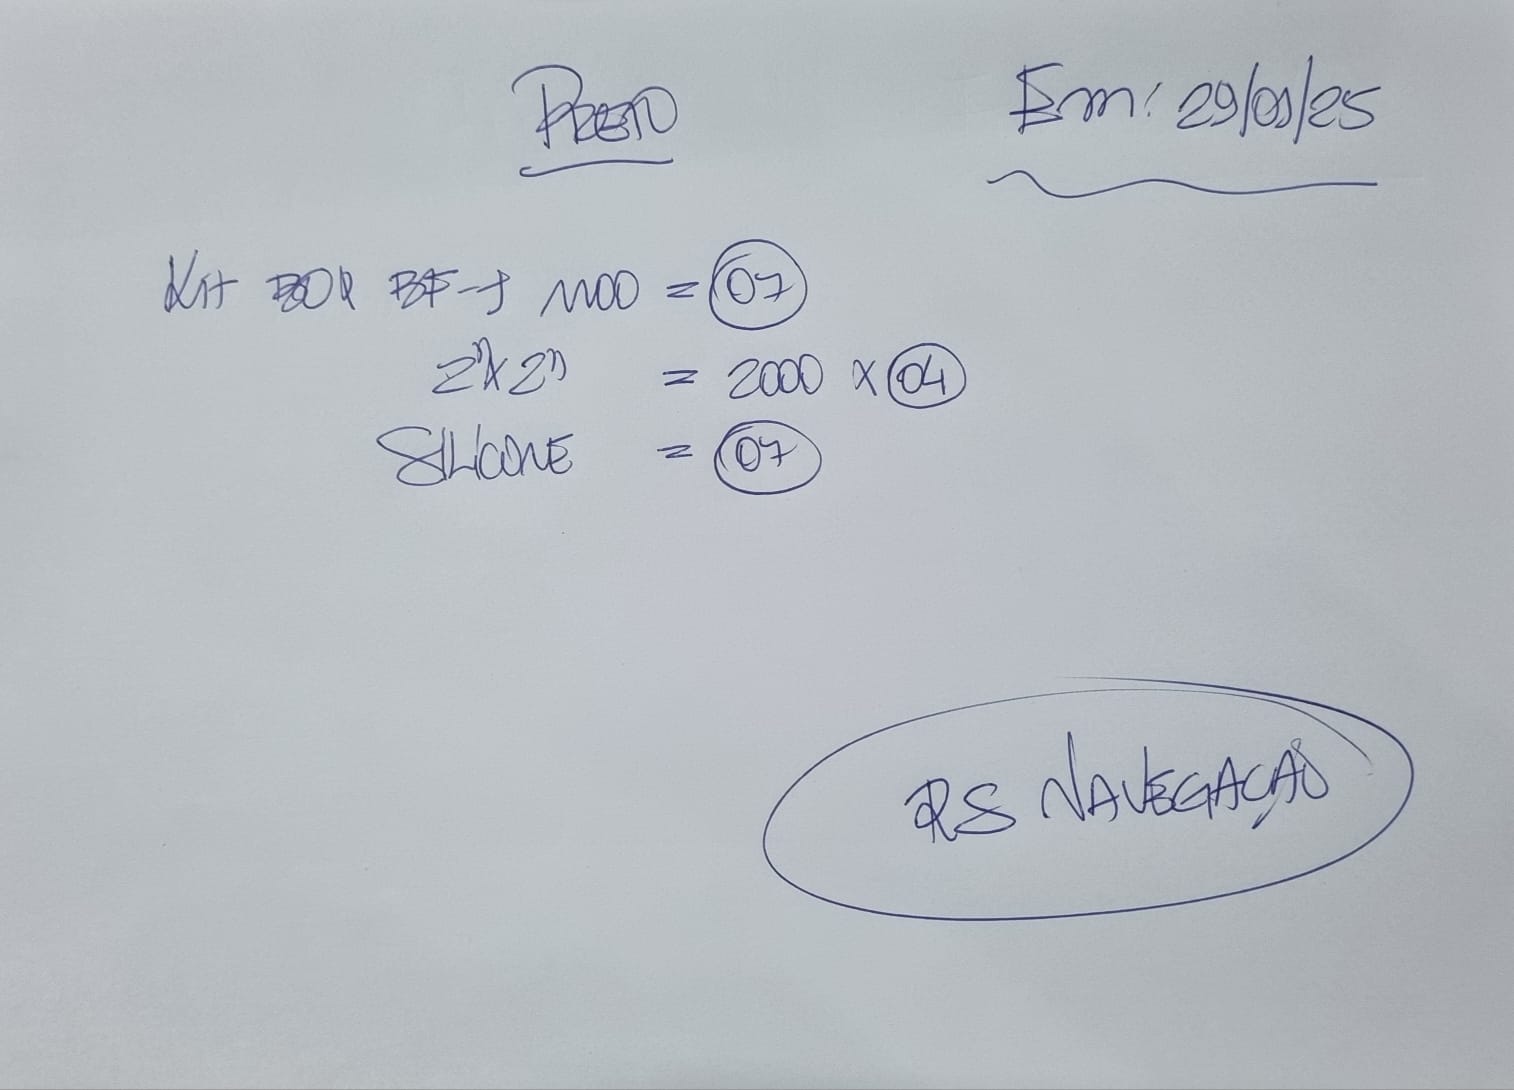 PRETO
Em: 29/09/25
Kit BOX BF-1 1100 = 07
2" x 2" = 2000 x 04
SILICONE = 07
RS NAVEGAÇÃO